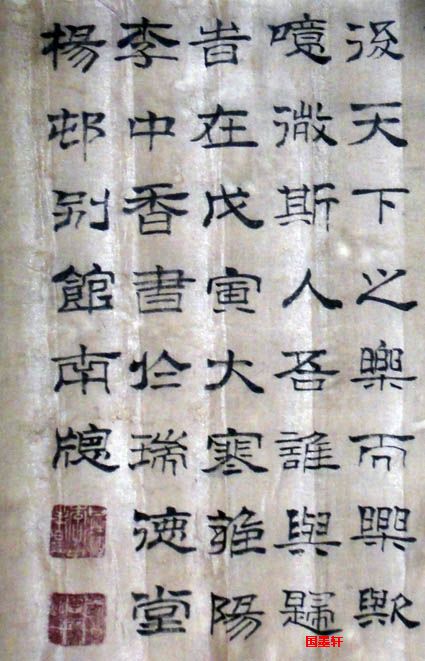 後天下之樂而樂歟
噫微斯人吾誰與歸
旹在戊寅大寒雒陽
李中香書於瑞徳堂
楊邨別館南牕
国墨轩